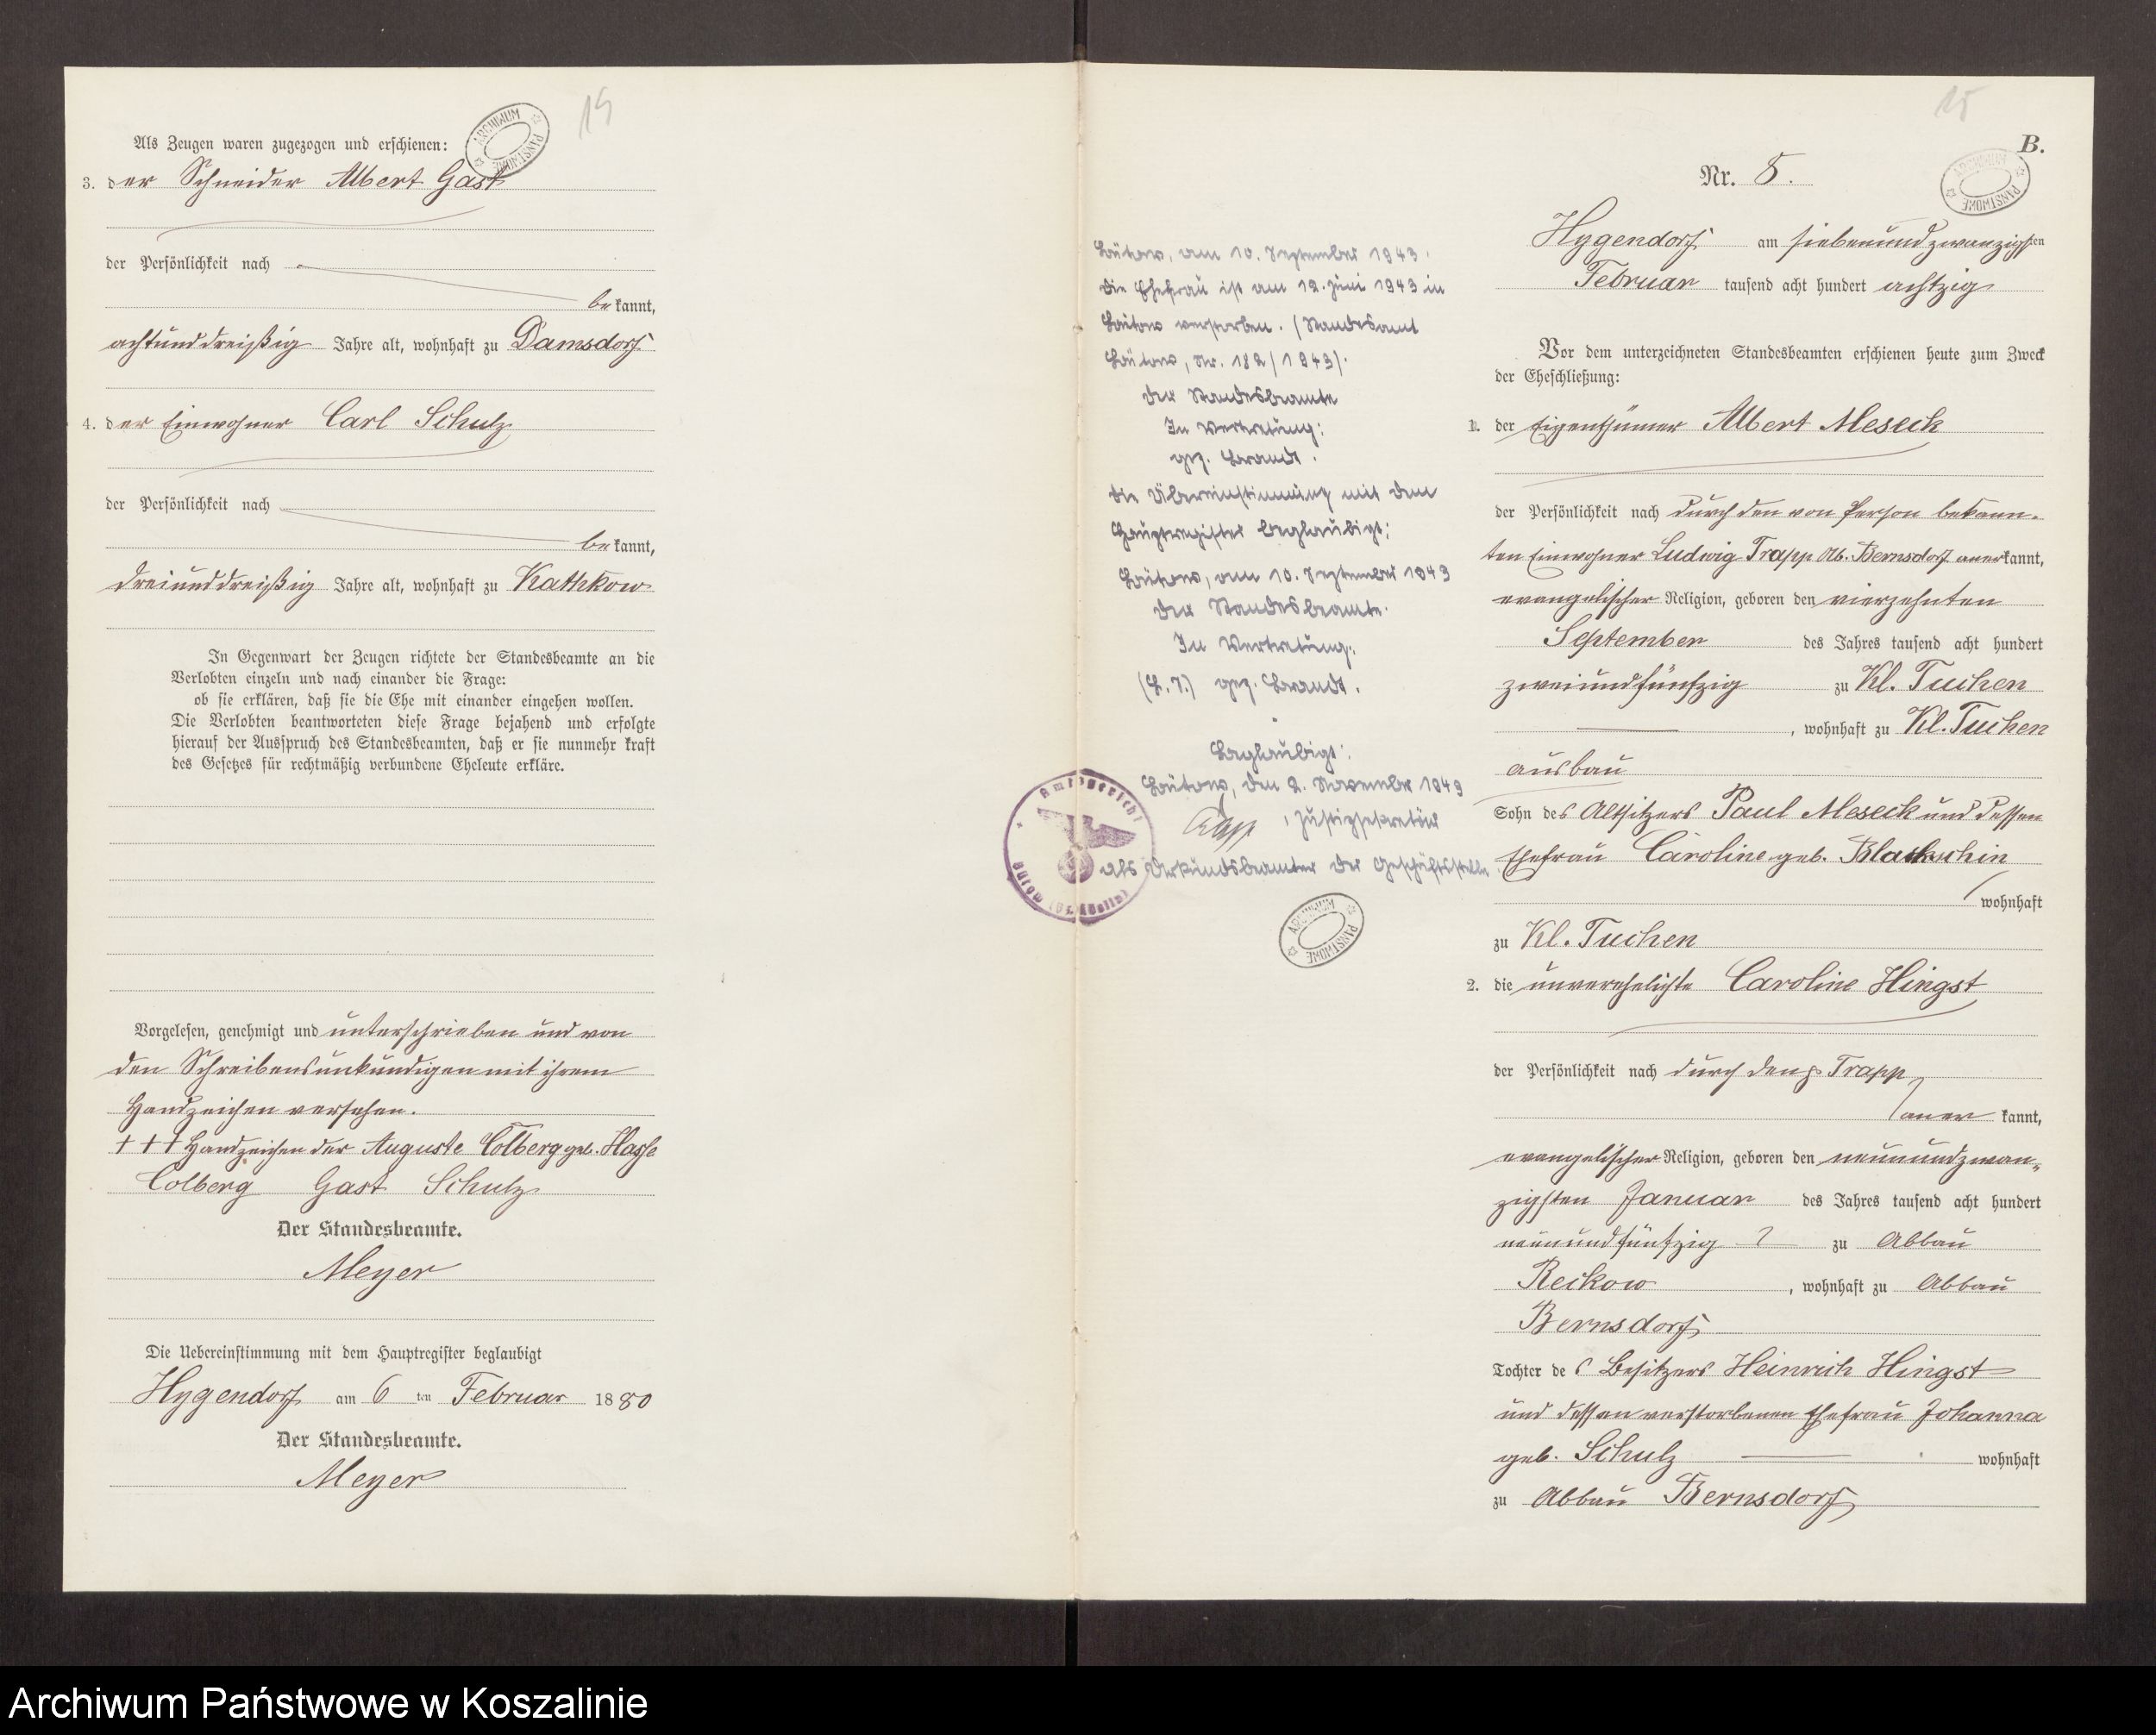 19
ARCHIWUM PAŃSTWOWE
Als Zeugen waren zugezogen und erschienen:
3. der Schneider Albert Gast
der Persönlichkeit nach
bekannt,
achtunddreißig Jahre alt, wohnhaft zu Damsdorf
4. der Einwohner Carl Schulz
der Persönlichkeit nach
bekannt,
dreiunddreißig Jahre alt, wohnhaft zu Kathkow
In Gegenwart der Zeugen richtete der Standesbeamte an die
Verlobten einzeln und nach einander die Frage:
ob sie erklären, daß sie die Ehe mit einander eingehen wollen.
Die Verlobten beantworteten diese Frage bejahend und erfolgte
hierauf der Ausspruch des Standesbeamten, daß er sie nunmehr kraft
des Gesetzes für rechtmäßig verbundene Eheleute erkläre.
Vorgelesen, genehmigt und unterschrieben und von
den Schreibensunkundigen mit ihrem
Handzeichen versehen.
+++ Handzeichen der Auguste Colberg geb. Hasse
Colberg Gast Schulz
Der Standesbeamte.
Meyer
Die Uebereinstimmung mit dem Hauptregister beglaubigt
Hygendorf am 6 ten Februar 1880
Der Standesbeamte.
Meyer
Bütow, am 10. September 1943.
Die Ehefrau ist am 12. Juni 1943 in
Bütow verstorben. (Standesamt
Bütow, Nr. 182/1943).
Der Standesbeamte
In Vertretung:
gez. Brandt.
Die Übereinstimmung mit dem
Hauptregister beglaubigt:
Bütow, am 10. September 1943
Der Standesbeamte.
In Vertretung:
(L.S.) gez. Brandt.
Beglaubigt:
Bütow, den 2. November 1943
, Justizsekretär
als Urkundsbeamter der Geschäftsstelle
Amtsgericht
Bütow (Bz. Köslin)
ARCHIWUM PAŃSTWOWE
15
B.
ARCHIWUM PAŃSTWOWE
Nr. 5.
Hygendorf am siebenundzwanzigsten
Februar tausend acht hundert achtzig
Vor dem unterzeichneten Standesbeamten erschienen heute zum Zweck
der Eheschließung:
1. der Eigenthümer Albert Meseck
der Persönlichkeit nach durch den von Person bekann-
ten Einwohner Ludwig Trapp Ab. Bernsdorf anerkannt,
evangelischer Religion, geboren den vierzehnten
September des Jahres tausend acht hundert
zweiundfünfzig zu Kl. Tuchen
, wohnhaft zu Kl. Tuchen
ausbau
Sohn des Altsitzers Paul Meseck und dessen
Ehefrau Caroline geb. Blaskschin
wohnhaft
zu Kl. Tuchen
2. die unverehelichte Caroline Hingst
der Persönlichkeit nach durch den p. Trapp
anerkannt,
evangelischer Religion, geboren den neunundzwan-
zigsten Januar des Jahres tausend acht hundert
neunundfünfzig zu Abbau
Reckow, wohnhaft zu Abbau
Bernsdorf
Tochter des Besitzers Heinrich Hingst
und dessen verstorbenen Ehefrau Johanna
geb. Schulz wohnhaft
zu Abbau Bernsdorf
Archiwum Państwowe w Koszalinie